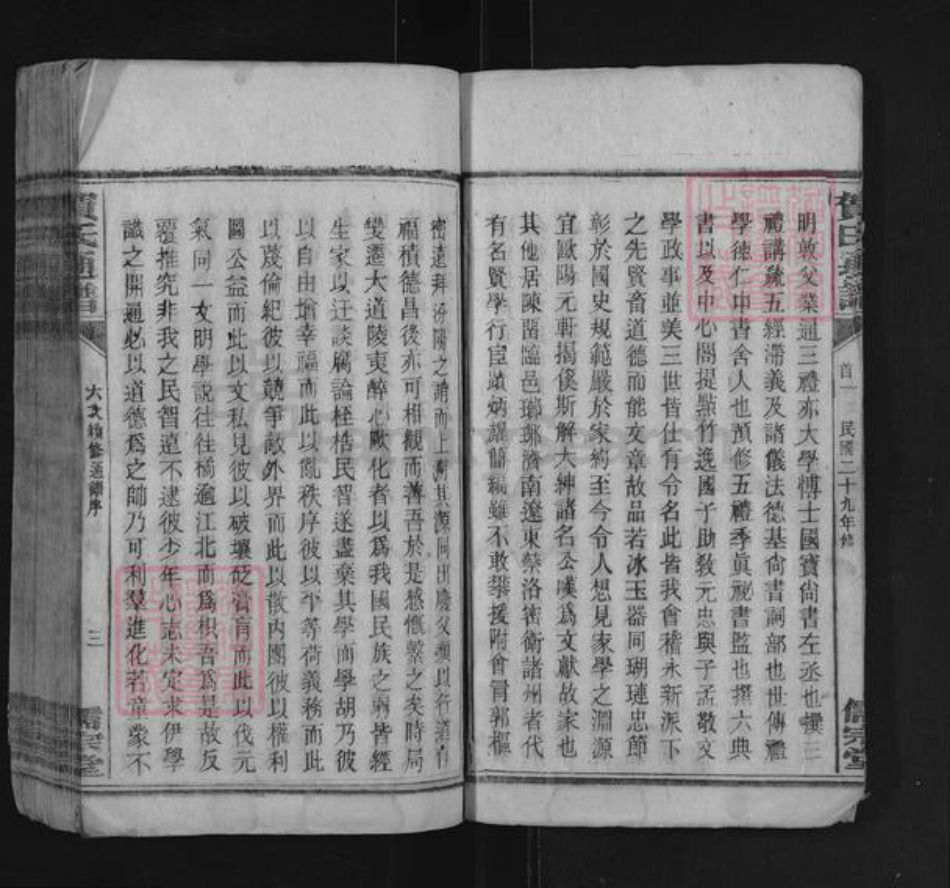 賀氏通譜
首一 民國二十九年修
儒宗堂
明敦父業通三禮亦大學博士國寶尚書左丞也撰三
禮講疏五經滯義及諸儀法德基尚書詞部也世傳禮
學德仁中書舍人也預修五禮季眞祕書監也撰六典
書以及中心閣提點竹逸國子助敎元忠與子孟敬文
學政事並美三世皆仕有令名此皆我會稽永新派下
之先賢畜道德而能文章故品若冰玉器同瑚璉忠節
彰於國史規範嚴於家約至今令人想見家學之淵源
宜歐陽元軒揭傒斯解大紳諸名公嘆爲文獻故家也
其他居陳葘臨邑瑯琊濟南遼東蔡洛密衛諸州者代
有名賢學行宦蹟炳耀簡編雖不敢攀援附會冒郭樞
密遠拜汾陽之誚而上溯其源同出慶父類以行道有
福積德昌後亦可相觀而善吾於是感慨繫之矣時局
變遷大道陵夷醉心歐化者以爲我國民族之弱皆經
生家以迂談腐論桎梏民智遂盡棄其學而學胡乃彼
以自由增幸福而此以亂秩序彼以平等荷義務而此
以蔑倫紀彼以競爭敵外界而此以散內團彼以權利
圖公益而此以文私見彼以破壞砭膏肓而此以伐元
氣同一文明學說往往橘逾江北而爲枳吾爲是故反
覆推究非我之民智遠不逮彼少年心志未定求伊學
識之開通必以道德爲之師乃可利羣進化若童蒙不
賀氏通譜
大文續修通譜序
三
儒宗堂